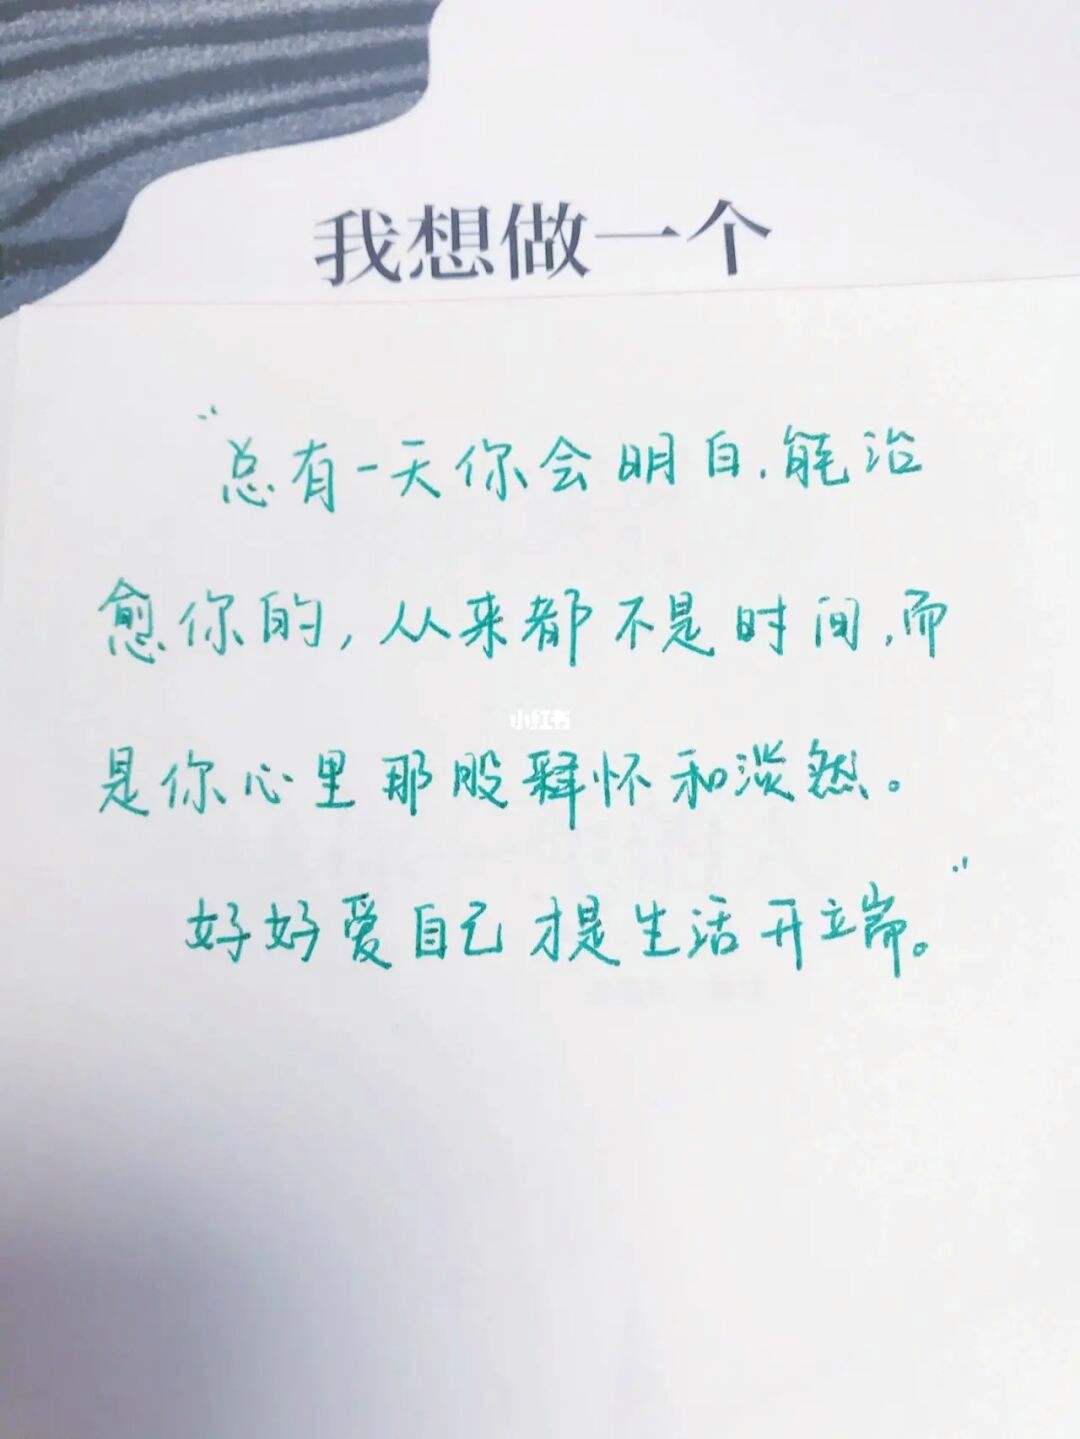 我想做一个
“总有一天你会明白,能治
愈你的,从来都不是时间,而
是你心里那股释怀和淡然。
小红书
好好爱自己才是生活开端。”